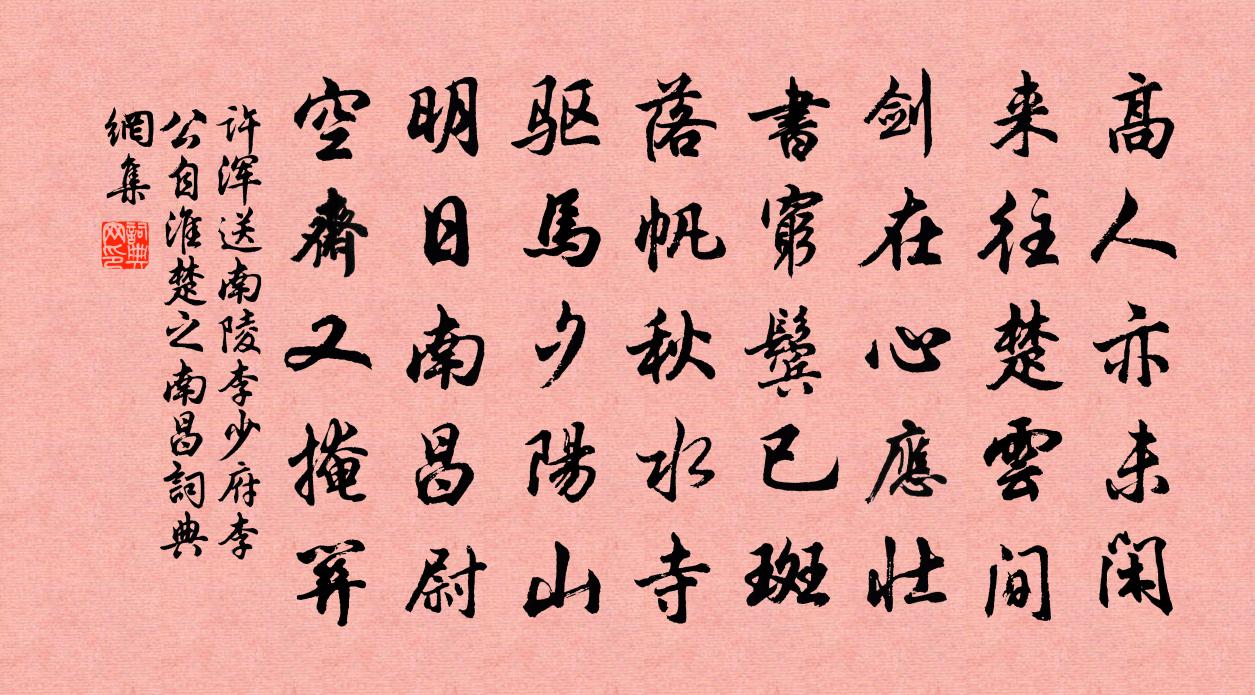 高人亦未闲
来往楚雲间
剑在心應壮
書窮鬓已斑
落帆秋水寺
驱馬夕陽山
明日南昌尉
空齋又掩關
许浑送南陵李少府李
公自淮楚之南昌詞典
網集
詞典
网印